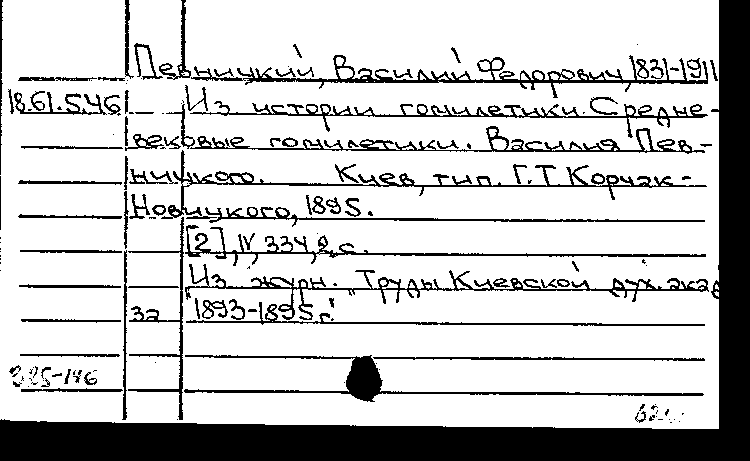 Певницкий, Василий Федорович, 1831-1911
18.61.5.46 Из истории гомилетики. Средне-
вековые гомилетики. Василия Пев-
ницкого. Киев, тип. Г.Т. Корчак-
Новицкого, 1895.
[2], IV, 334, 2 с.
Из журн. "Труды Киевской дух. акад
за 1893-1895 г."